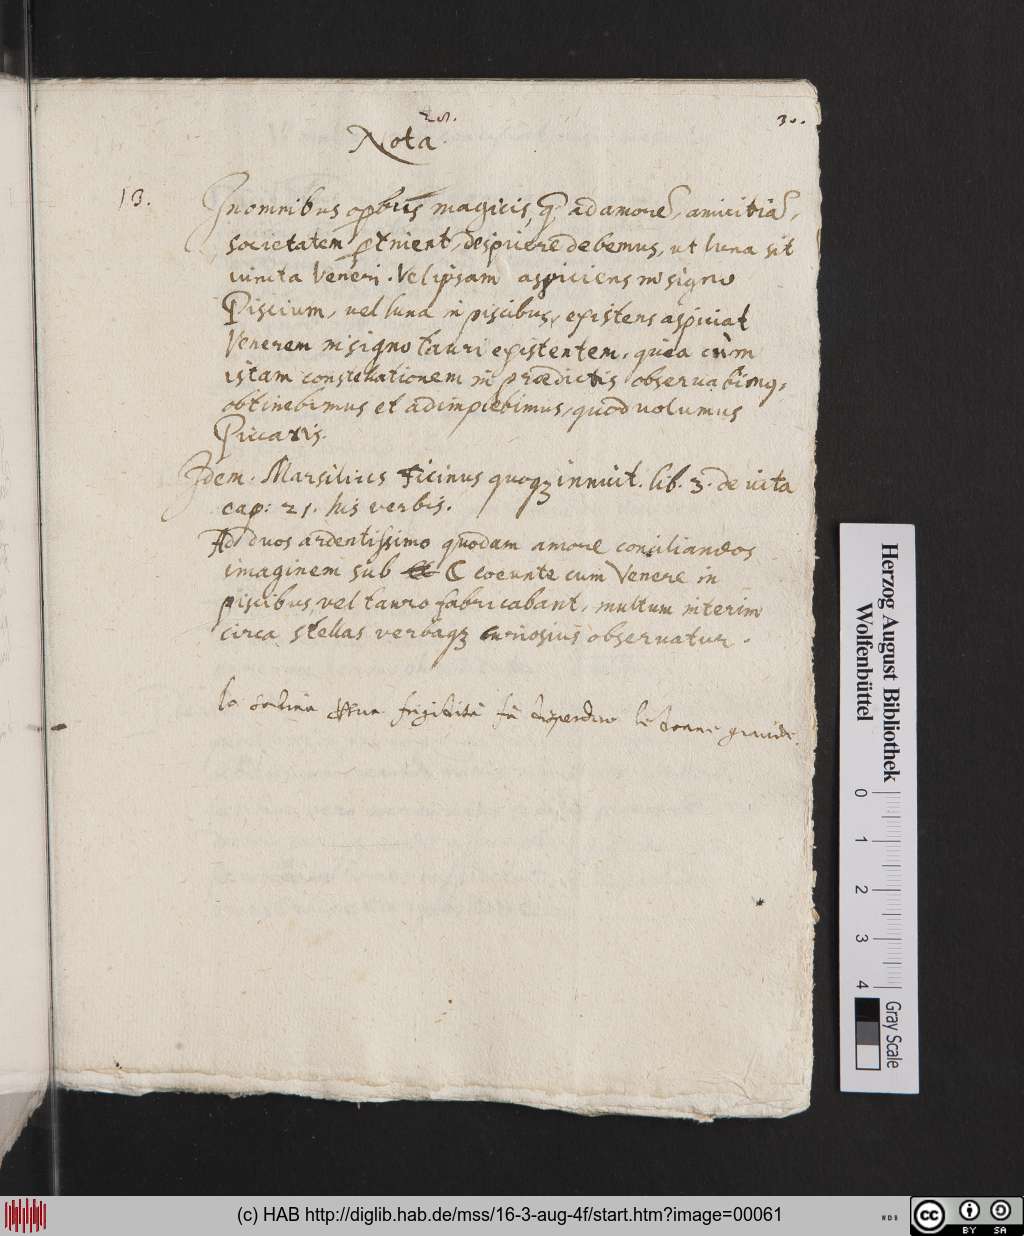 28.
30.
Nota
13.
In omnibus opbus magicis, q ad amorē, amicitiā,
societatem ptnient, despicere debemus, ut luna sit
iuncta Veneri. Vel ipsam aspiciens in signo
Piscium, vel luna in piscibus, existens aspiciat
Venerem in signo tauri existentem, quia cùm
istam constellationem in prædictis observabimq,
obtinebimus et adimplebimus, quod volumus
Piccatrix.
Idem. Marsilius Ficinus quoqz innuit. lib. 3. de vita
cap: 21. his verbis.
Ad duos ardentissimo quodam amore conciliandos
imaginem sub ☾ coeunte cum Venere in
piscibus, vel tauro fabricabant, multum interim
circa stellas verbaqz curiosius observatur.
la frigidità fà disperdere le donne gravide.
Herzog August Bibliothek
Wolfenbüttel
0 1 2 3 4
Gray Scale
(c) HAB http://diglib.hab.de/mss/16-3-aug-4f/start.htm?image=00061
WDB
cc BY SA